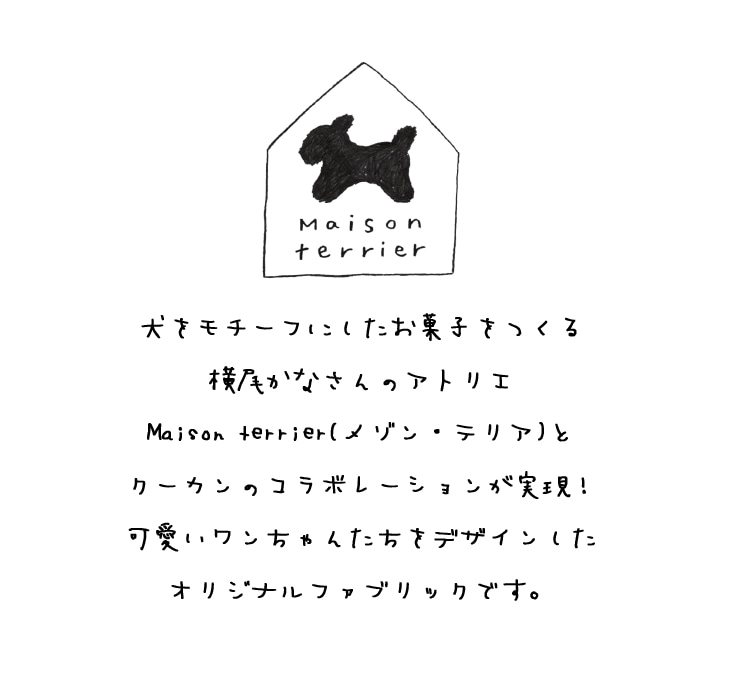 Maison
terrier
犬をモチーフにしたお菓子をつくる
横尾かなさんのアトリエ
Maison terrier(メゾン・テリア)と
クーカンのコラボレーションが実現!
可愛いワンちゃんたちをデザインした
オリジナルファブリックです。